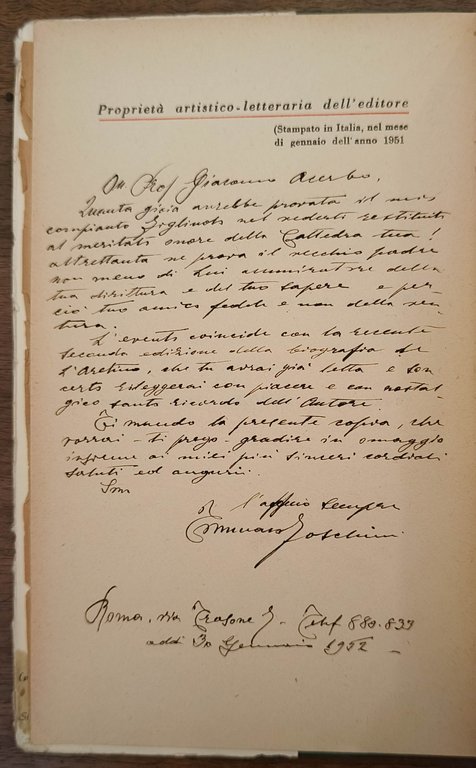 Proprietà artistico-letteraria dell'editore
(Stampato in Italia, nel mese
di gennaio dell'anno 1951
Prof Giacomo Acerbo,
Quanta gioia avrebbe provata il mio
compianto nel vederti restituito
al meritato onore della Cattedra tua!
altrettanta ne prova il vecchio padre
non meno di Lui ammiratore della
tua dirittura e del tuo sapere e per-
ciò tuo amico fedele e non della ven-
tura.
L'evento coincide con la recente
seconda edizione della biografia de
l'Aretino, che tu avrai già letta e son
certo rileggerai con piacere e con nostal-
gico santo ricordo dell'Autore.
Ti mando la presente copia, che
vorrai - ti prego - gradire in omaggio
insieme ai miei più sinceri cordiali
saluti ed auguri.
Foschini
Roma, via Trasone 8 - Telef 880.833
addì 30 Gennaio 1952